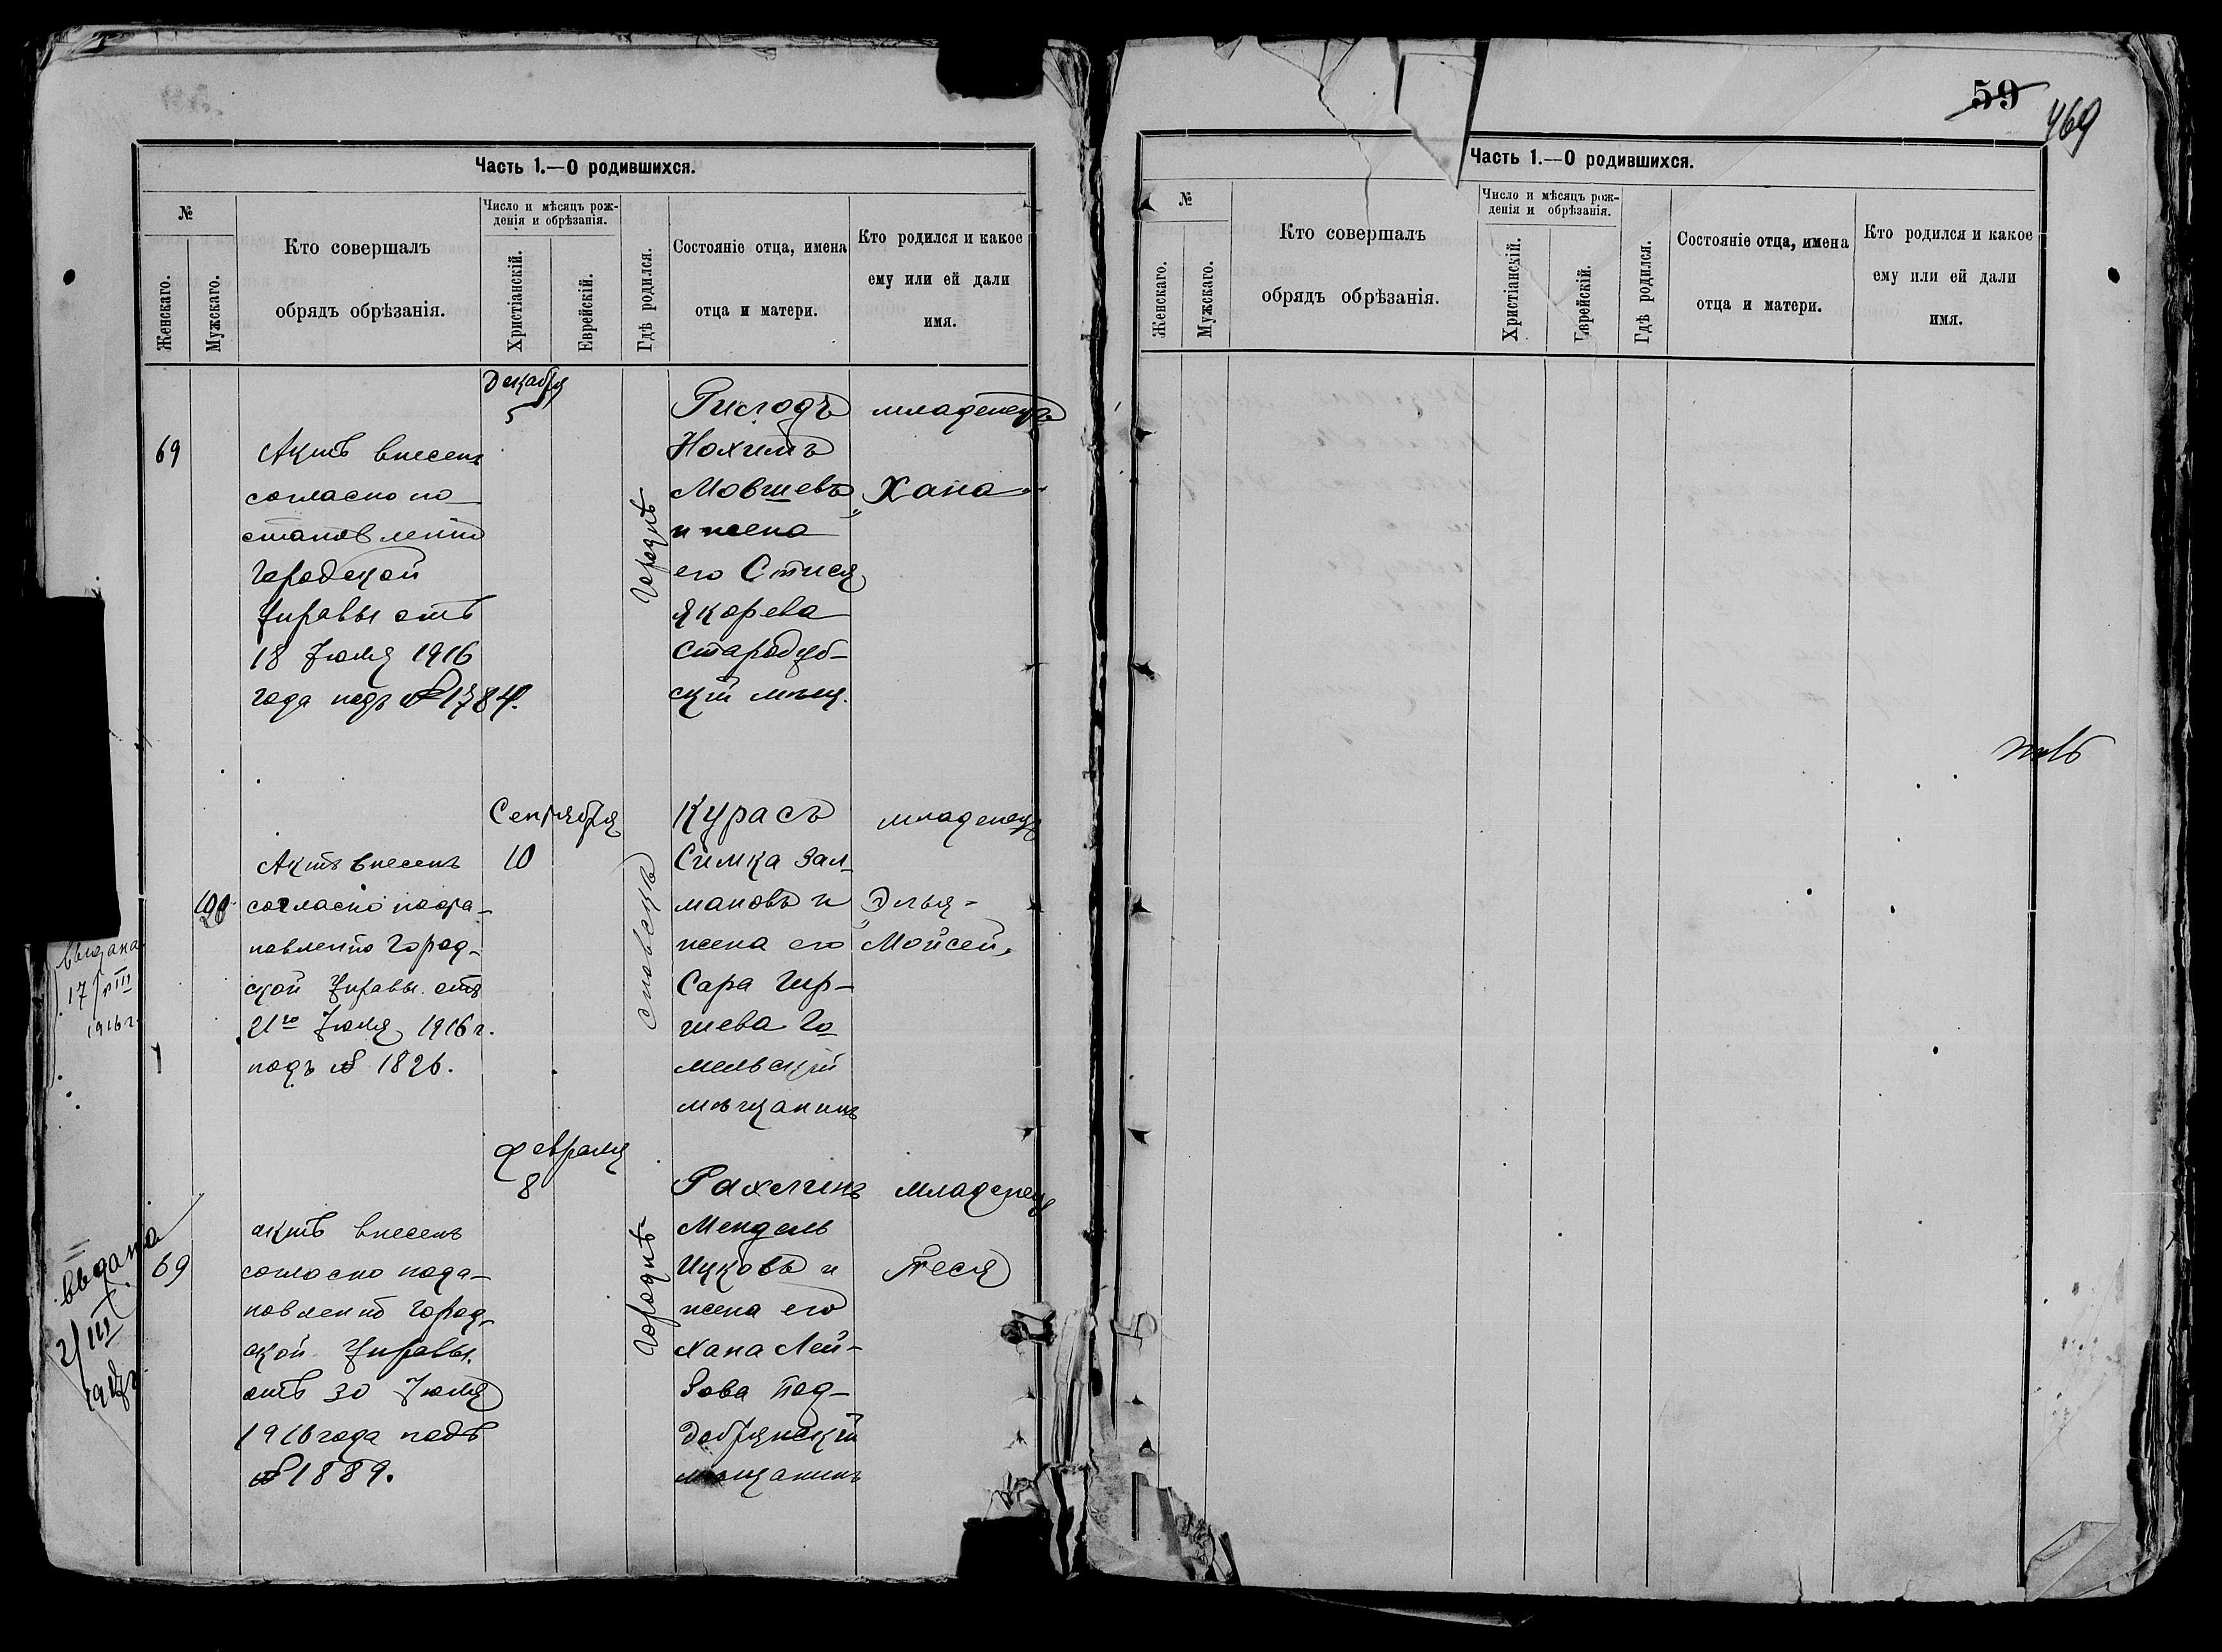 Часть 1.—О родившихся.
№
Женскаго.
Мужскаго.
Кто совершалъ
обрядъ обрѣзанія.
Число и мѣсяцъ рож-
денія и обрѣзанія.
Христіанскій.
Еврейскій.
Гдѣ родился.
Состояніе отца, имена
отца и матери.
Кто родился и какое
ему или ей дали
имя.
69
Актъ внесенъ
согласно по
становленію
Городской
Управы отъ
18 Іюля 1916
года подъ № 1784.
Декабря
5
Городнѣ
Нохимъ
Мовшевъ
и жена
его Стися
Якорева
Стародуб-
скій мѣщ.
младенецъ
Хана
Актъ внесенъ
согласно поста-
новленію Город-
ской Управы отъ
21го Іюля 1916 г.
подъ № 1826.
Сентября
10
Курасъ
Симка Зал-
мановъ и
жена его
Сара Гир-
шева Го
мельскій
мѣщанинъ
младенецъ
Элья-
Мойсей
выдана
17/VIII
1916 г.
69
актъ внесенъ
согласно поста-
новленію Город-
ской Управы
отъ 30 Іюля
1916 года подъ
№ 1889.
Февраля
8
Городнѣ
Рахлинъ
Мендель
Ицковъ и
жена его
Хана Лей-
зова Под-
добрянскій
мѣщанинъ
младенецъ
Песя
выдана
2/III
59
469
Часть 1.—О родившихся.
№
Женскаго.
Мужскаго.
Кто совершалъ
обрядъ обрѣзанія.
Число и мѣсяцъ рож-
денія и обрѣзанія.
Христіанскій.
Еврейскій.
Гдѣ родился.
Состояніе отца, имена
отца и матери.
Кто родился и какое
ему или ей дали
имя.